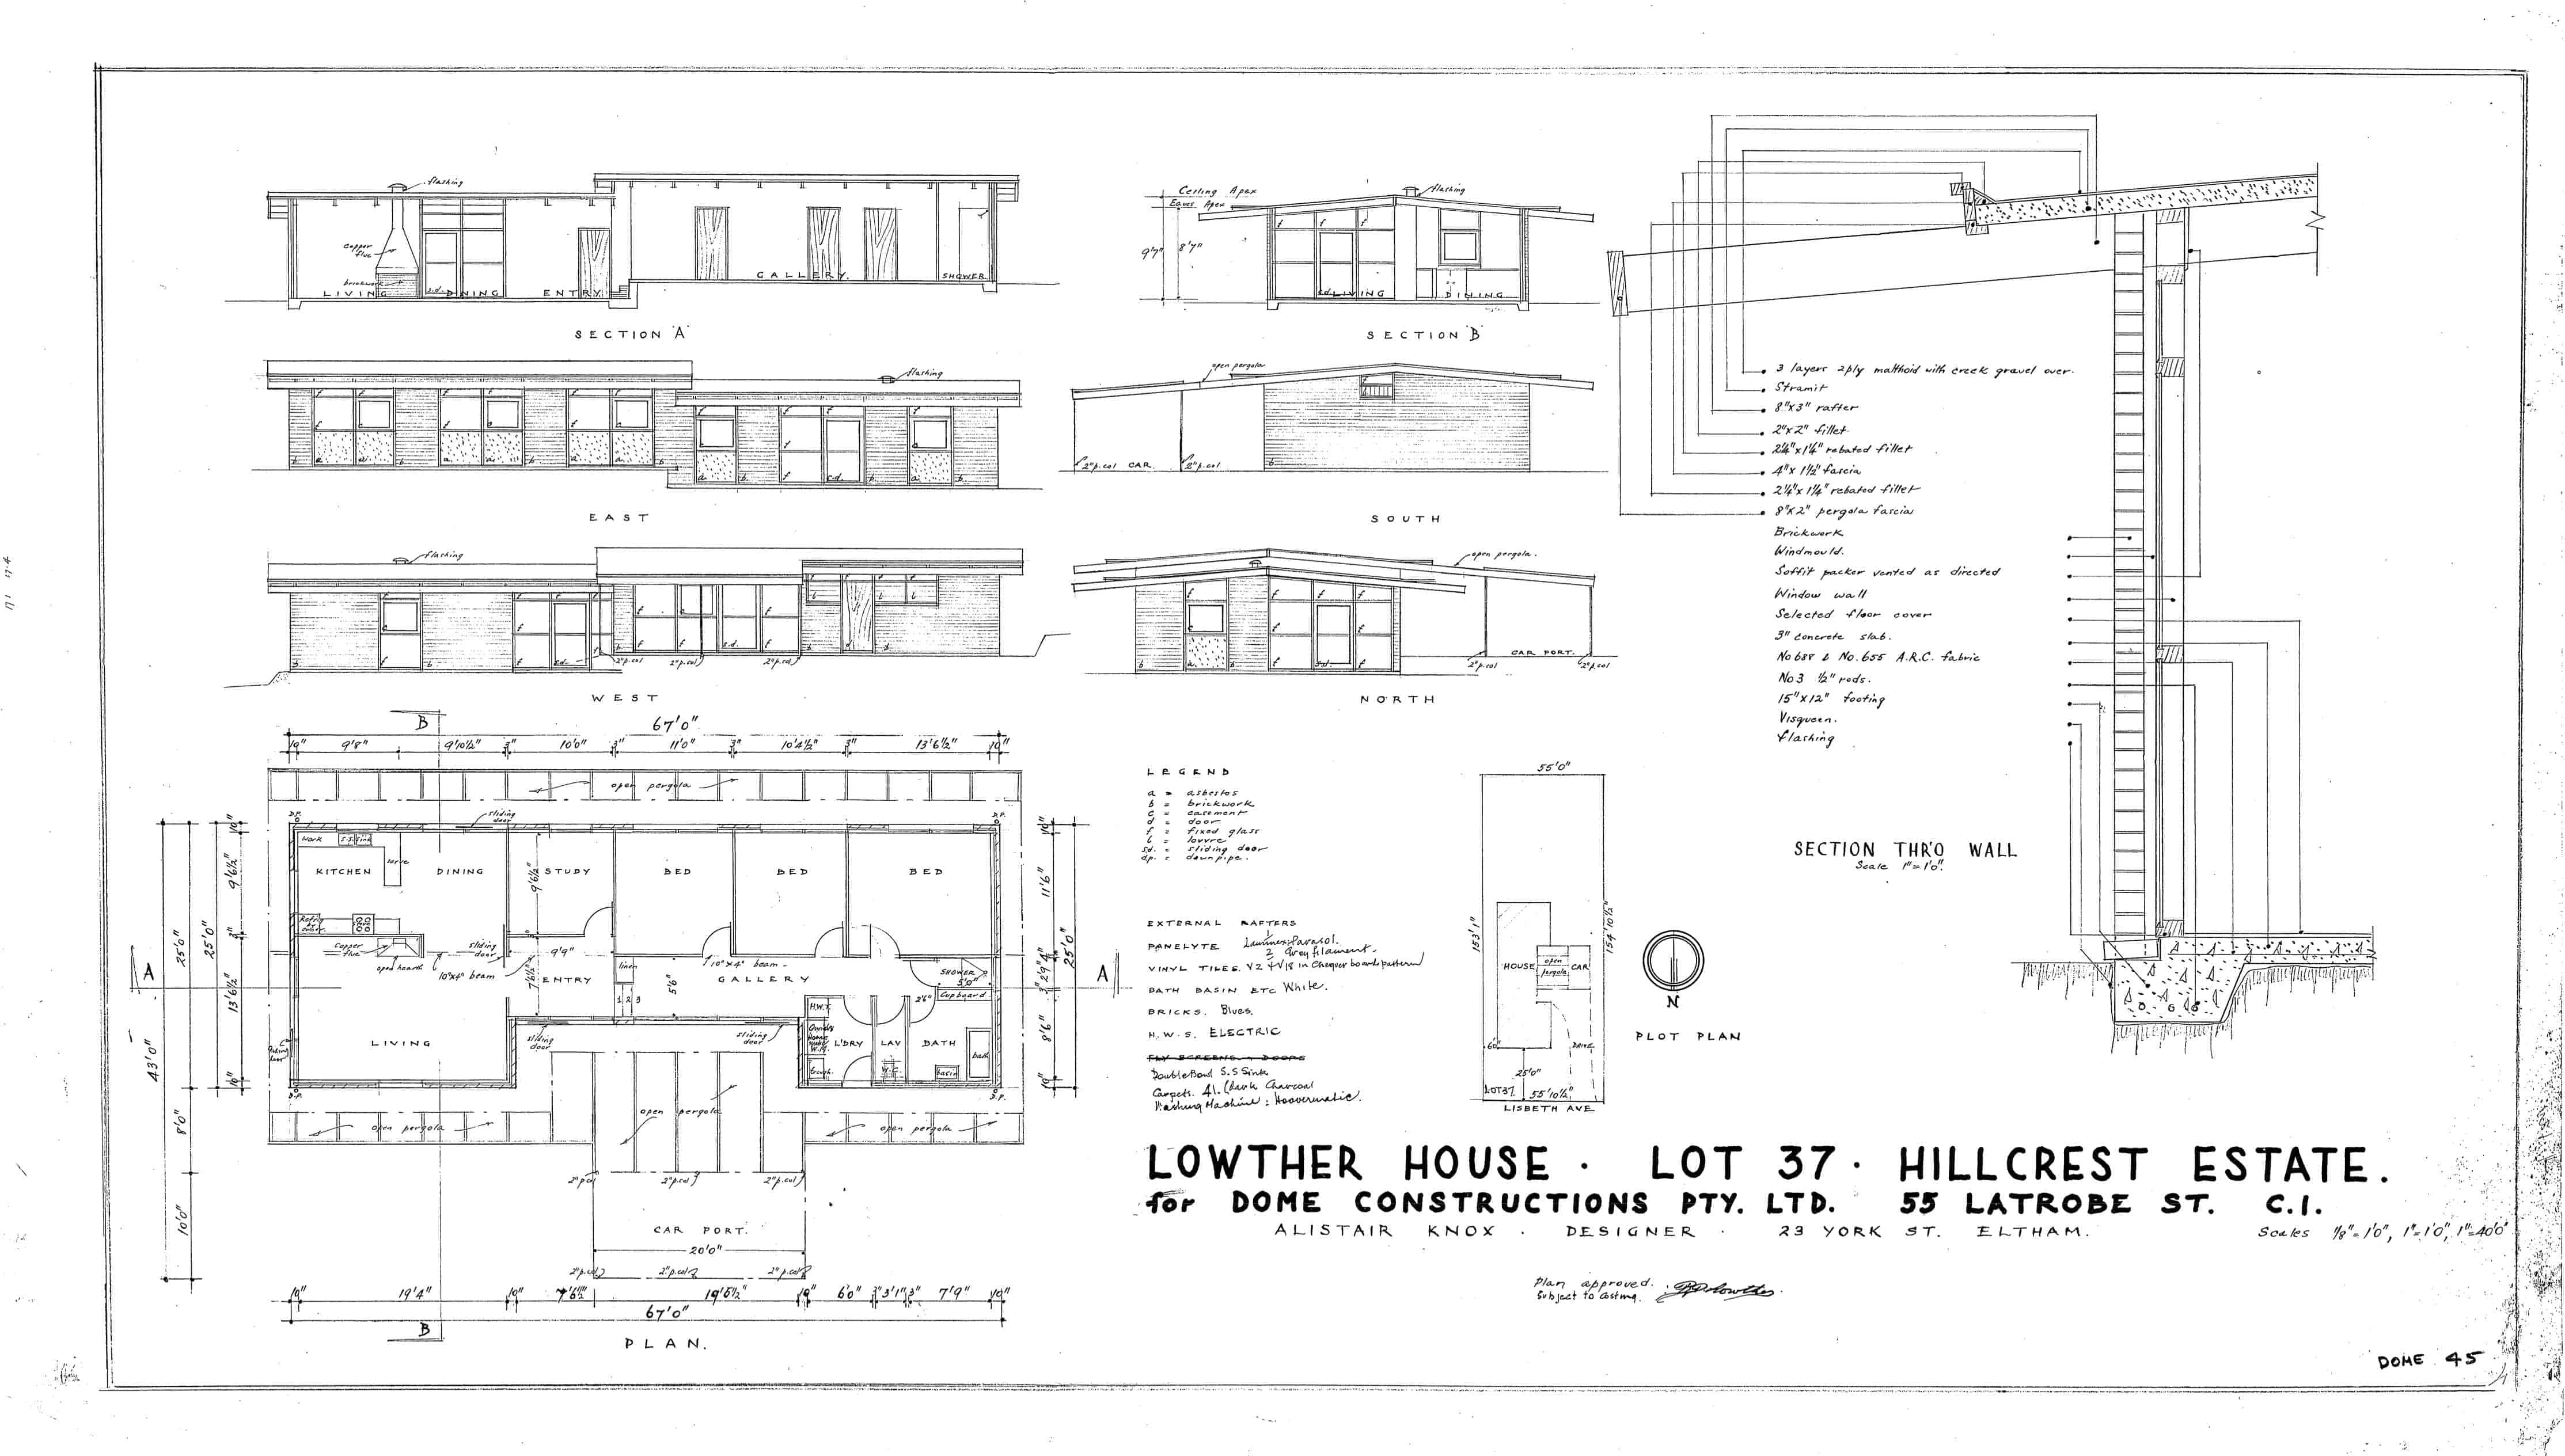 flashing
copper flue
brickwork
LIVING
s.d.
DINING
ENTRY
GALLERY
SHOWER
SECTION 'A'
Ceiling Apex
Eaves Apex
flashing
9'7"
8'7"
s.d.
LIVING
DINING
SECTION 'B'
flashing
EAST
open pergola
2"p.col
CAR.
2"p.col
SOUTH
flashing
2"p.col
2"p.col
2"p.col
WEST
open pergola.
CAR PORT.
2"p.col
2"p.col
NORTH
3 layers 2ply malthoid with creek gravel over.
Stramit
8"x3" rafter
2"x2" fillet
2¼"x1¼" rebated fillet
4"x1½" fascia
2¼"x1¼" rebated fillet
8"x2" pergola fascia
Brickwork
Windmould.
Soffit packer vented as directed
Window wall
Selected floor cover
3" concrete slab.
No 688 & No. 655 A.R.C. fabric
No 3 ½" rods.
15"x12" footing
Visqueen.
flashing
SECTION THR'O WALL
Scale 1"=1'0".
B
67'0"
10" 9'8" 9'10½" 3" 10'0" 3" 11'0" 3" 10'4½" 3" 13'6½" 10"
open pergola
D.P.
sliding door
D.P.
work
S.S. Sink
serve
KITCHEN
DINING
STUDY
BED
BED
BED
9'6½"
Refrig by owner
copper flue
open hearth
10"x4" beam
sliding door
9'9"
7'4½"
ENTRY
linen
1 2 3
5'6"
10"x4" beam
GALLERY
SHOWER
3'0"
Cupboard
2'6"
H.W.T.
LIVING
sliding door
sliding door
L'DRY
LAV
BATH
bath
trough
W.C.
basin
D.P.
D.P.
A
A
10"
9'6½"
3"
13'6½"
10"
25'0"
25'0"
43'0"
8'0"
10'0"
10"
11'6"
3"
8'6"
10"
25'0"
open pergola
open pergola
open pergola
2"p.col
2"p.col
2"p.col
CAR PORT.
20'0"
2"p.col
2"p.col
2"p.col
10" 19'4" 10" 7'6½" 19'6½" 10" 6'0" 3" 3'1" 3" 7'9" 10"
67'0"
B
PLAN.
LEGEND
a = asbestos
b = brickwork
c = casement
d = door
f = fixed glass
l = louvre
s.d. = sliding door
dp. = downpipe.
EXTERNAL RAFTERS
PANELYTE Laminex Parasol.
2 Grey filament.
VINYL TILES. V2 & V18 in Chequer board pattern
BATH BASIN ETC White.
BRICKS. Blues.
H.W.S. ELECTRIC
FLY SCREENS & DOORS
Double Bowl S.S Sink
Carpets. 41. (Dark Charcoal
Washing Machine: Hoovermatic.
55'0"
153'1"
154'10½"
HOUSE
open pergola
CAR
6'0"
DRIVE
25'0"
LOT 37.
55'10½"
LISBETH AVE
N
PLOT PLAN
LOWTHER HOUSE · LOT 37 · HILLCREST ESTATE.
for DOME CONSTRUCTIONS PTY. LTD. 55 LATROBE ST. C.1.
ALISTAIR KNOX · DESIGNER · 23 YORK ST. ELTHAM.
Scales 1/8"=1'0", 1"=1'0", 1"=40'0"
Plan approved.
Subject to costing.
DOME 45